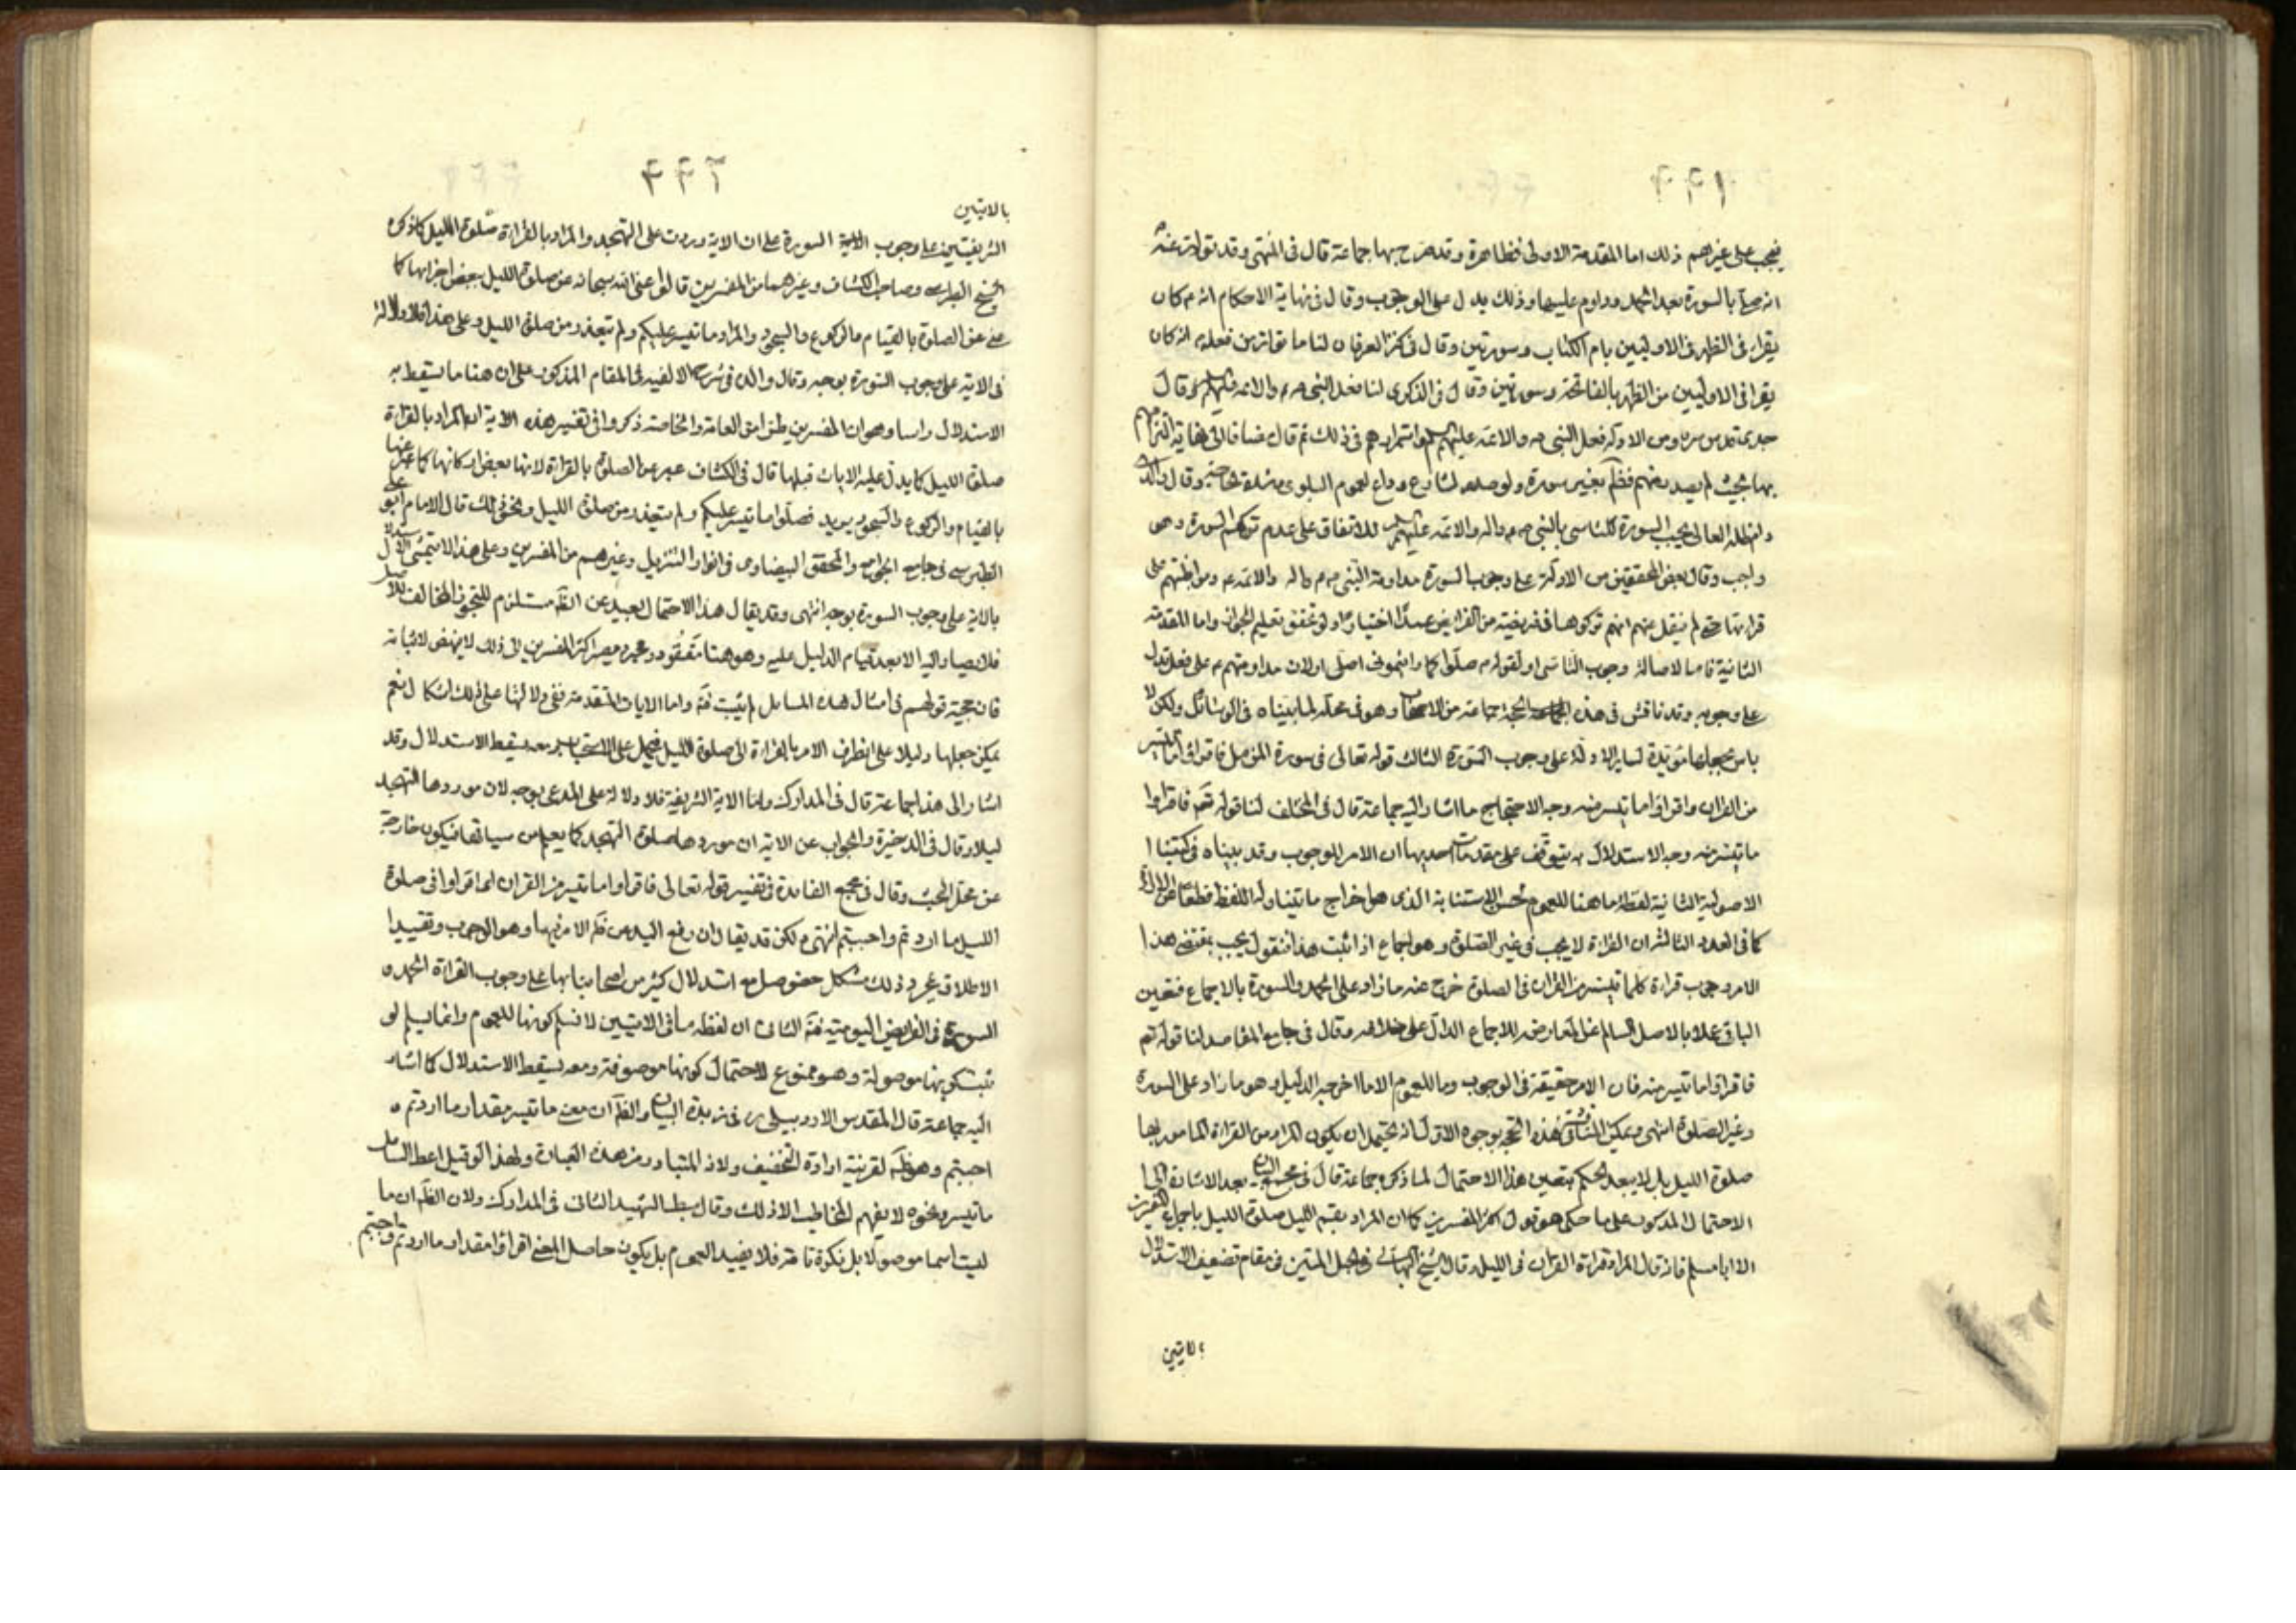 ٤٤١
فيجب على غيرهم ذلك اما المقدمة الاولى فظاهرة وقد صرح بها جماعة قال فى المنتهى وقد تواتر عنه
انه صلى بالسورة بعد الحمد وداوم عليها وذلك يدل على الوجوب وقال فى نهاية الاحكام انه م كان
يقراء فى الظهر فى الاوليين بام الكتاب وسورتين وقال فى كنز العرفان لنا ما تواتر من فعله م انه كان
يقرا فى الاوليين من الظهر بالفاتحة وسورتين وقال فى الذكرى لنا فعل النبى ص والائمة عليهم وقال
جدى قدس سره ومن الادلة فعل النبى ص والائمة عليهم واستمرارهم فى ذلك ثم قال مضافا الى
بها بحيث لم يصدر عنهم فظ بغير سورة ولو صدر لشاع وذاع لعموم البلوى وقال والدى
دام ظله العالى يجب السورة للتاسى بالنبى ص واله والائمة عليهم للاتفاق على عدم تركهم السورة وهى
واجب وقال بعض المحققين من الادلة على وجوب السورة مداومة النبى ص واله والائمة ع ومواظبتهم على
قرائتها حتى لم ينقل عنهم انهم تركوها فى فريضة من الفرايض عمدا اختيارا ولو تحقق تعليم الجواز واما المقدمة
الثانية فاما لاصالة وجوب التاسى او لقوله م صلوا كما رايتمونى اصلى او لان مداومتهم ع على فعل تدل
على وجوبه وقد ناقش فى هذه الحجة جماعة من الاصحاب وهو فى محله لما بيناه فى الوسائل ولكن لا
باس بجعلها مؤيدة لساير الادلة على وجوب السورة الثالث قوله تعالى فى سورة المزمل فاقراوا ما تيسر
من القران واقراوا ما تيسر منه وجه الاحتجاج ما اشار اليه جماعة قال فى المختلف لنا قوله تع فاقراوا
ما تيسر منه وجه الاستدلال به يتوقف على مقدمات احديها ان الامر للوجوب وقد بيناه فى كتبنا
الاصولية الثانية لفظة ما هنا للعموم لحسن الاستثناء به الذى هو اخراج ما يتناوله اللفظ قطعا
كما فى العدد الثالث ان القراءة لا يجب فى غير الصلوة وهو اجماع اذا ثبت هذا فنقول يجب بمقتضى هذا
الامر وجوب قراءة كلما تيسر من القران فى الصلوة خرج عنه ما زاد على الحمد والسورة بالاجماع فتعين
الباقى عملا بالاصل السالم عن المعارضة للاجماع الدال على خلافه وقال فى جامع المقاصد لنا قوله تع
فاقراوا ما تيسر منه فان الامر حقيقة فى الوجوب وما للعموم الا ما اخرجه الدليل وهو ما زاد على السورة
وغير الصلوة انتهى ويمكن المناقشة فى هذه الحجة بوجوه الاول انه يحتمل ان يكون المراد من القراءة المامور بها
صلوة الليل بل لا يبعد الحكم بتعين هذا الاحتمال لما ذكره جماعة قال فى مجمع البيان بعد الاشارة الى
الاحتمال المذكور على ما حكى هو قول اكثر المفسرين كما ان المراد بقم الليل صلوة الليل باجماع المفسرين
الا ابا مسلم فانه قال المراد قراءة القران فى الليل وقال الشيخ البهائى فى الحبل المتين فى مقام تضعيف الاستدلال
بالايتين
٤٤٢
بالايتين
الشريفتين على وجوب السورة على ان الاية وردت على التهجد والمراد بالقراءة صلوة الليل كما ذكره
الشيخ الطبرسى وصاحب الكشاف وغيرهما من المفسرين قالوا عنى الله سبحانه عن صلوة الليل ببعض اجزائها كما
عنى عن الصلوة بالقيام والركوع والسجود والمراد ما تيسر عليكم ولم يتعذر من صلوة الليل وعلى هذا فلا دلالة
فى الاية على وجوب السورة بوجه وقال والدى فى شرح الالفية فى المقام المذكور على ان هنا ما يسقط به
الاستدلال راسا وهو ان المفسرين طرا من العامة والخاصة ذكروا فى تفسير هذه الاية ان المراد بالقراءة
صلوة الليل كما يدل عليه الايات قبلها قال فى الكشاف عبر عن الصلوة بالقراءة لانها بعض اركانها كما عبر عنها
بالقيام والركوع والسجود يريد فصلوا ما تيسر عليكم ولم يتعذر من صلوة الليل ونحو ذلك قال الامام ابو على
الطبرسى فى جامع الجوامع والمحقق البيضاوى فى انوار التنزيل وغيرهم من المفسرين وعلى هذا لا يتمشى الاستدلال
بالاية على وجوب السورة بوجه انتهى وقد يقال هذا الاحتمال بعيد عن الظ مستلزم للتجوز المخالف للاصل
فلا يصار اليه الا بعد قيام الدليل عليه وهو هنا مفقود ومجرد مصير اكثر المفسرين الى ذلك لا ينهض لاثباته
فان حجية قولهم فى امثال هذه المسايل لم يثبت فة واما الايات المتقدمة ففى دلالتها على ذلك اشكال نعم
يمكن جعلها دليلا على انصراف الامر بالقراءة الى صلوة الليل فيحمل على الاستحباب ومعه يسقط الاستدلال وقد
اشار الى هذا جماعة قال فى المدارك واما الاية الشريفة فلا دلالة على المدعى بوجه لان موردها التهجد
ليلا وقال فى الذخيرة والجواب عن الاية ان موردها صلوة التهجد كما يعلم من سياقها فيكون خارجة
عن محل البحث وقال فى مجمع الفائدة فى تفسير قوله تعالى فاقراوا ما تيسر من القران اى اقراوا فى صلوة
الليل ما اردتم واحببتم انتهى لكن قد يقال ان رفع اليد عن ظ الامر فيها وهو الوجوب وتقييد
الاطلاق بمجرد ذلك مشكل خصوصا مع استدلال كثير من اصحابنا بها على وجوب القراءة الحمد و
السورة فى الفرايض اليومية فة الثانى ان لفظه ما فى الايتين لا نسلم كونها للعموم وانما يسلم لو
ثبت كونها موصولة وهو ممنوع لاحتمال كونها موصوفة ومعه يسقط الاستدلال كما اشار
اليه جماعة قال المقدس الاردبيلى ره فى زبدة البيان والظ ان معنى ما تيسر مقدار ما اردتم و
احببتم وهو ظ لقرينة ارادة التخفيف ولانه المتبادر من هذه العبارة ولهذا لو قيل اعط السائل
ما تيسر ونحوه لا يفهم المخاطب الا ذلك وقال سبط الشهيد الثانى فى المدارك ولان الظ ان ما
ليست اسما موصولا بل نكرة تامة فلا يفيد العموم بل يكون حاصل المعنى اقراوا مقدار ما اردتم واحببتم